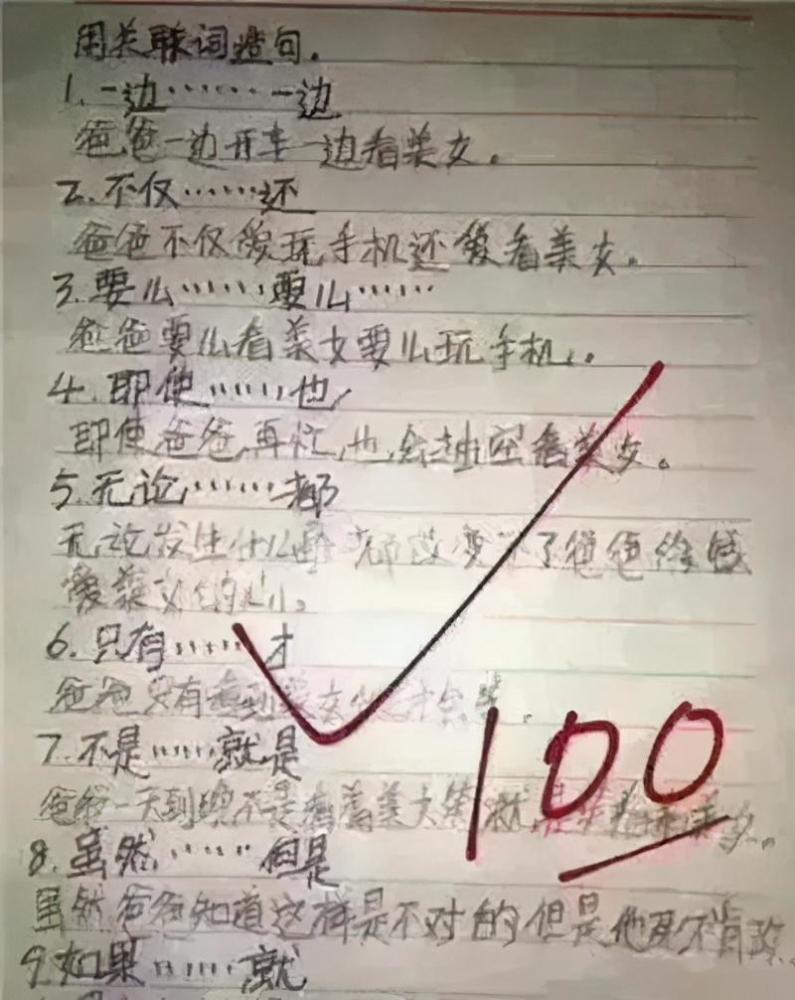 用关联词造句。
1.一边……一边
爸爸一边开车一边看美女。
2.不仅……还
爸爸不仅爱玩手机还爱看美女。
3.要么……要么……
爸爸要么看美女要么玩手机。
4.即使……也
即使爸爸再忙,也会抽空看美女。
5.无论……都
无论发生什么 都改变不了爸爸
爱美女的心。
6.只有……才
爸爸只有看到美女 才会笑。
7.不是……就是
爸爸一天到晚不是看着美女 就是 美女。
8.虽然……但是
虽然爸爸知道这样是不对的但是他死不肯改。
9.如果……就
100